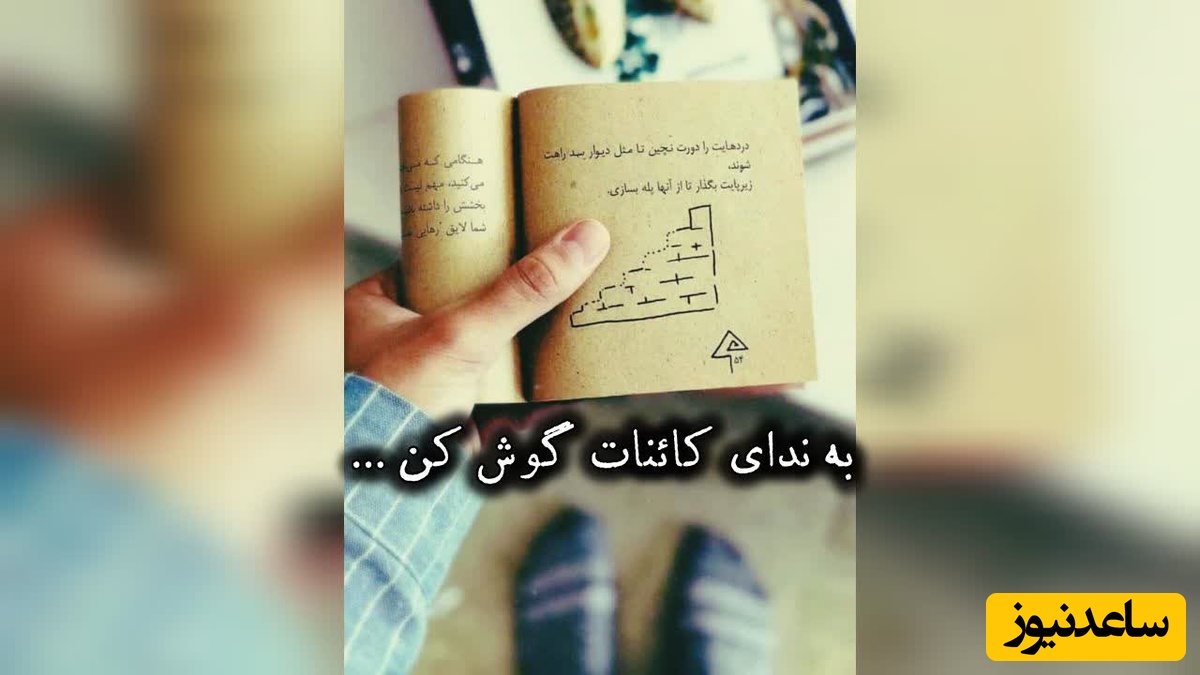 دردهایت را دورت نچین تا مثل دیوار سد راهت
شوند،
زیرپایت بگذار تا از آنها پله بسازی.
۵۴
هنگامی که
می‌کنید، مهم نیست
بخشش را داشته
شما لایق "رهایی
به ندای کائنات گوش کن ...
ساعدنیوز